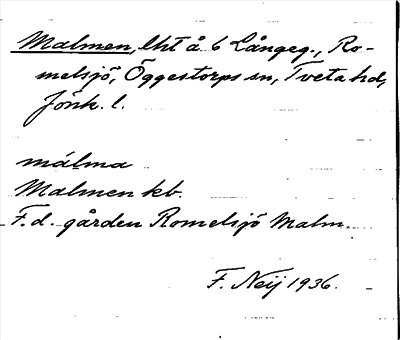 Malmen, lht å 6 Långeg., Ro-
melsjö, Öggestorps sn, Tveta hd,
Jönk. l.
málma
Malmen kb.
F.d. gården Romelsjö Malm.
F. Neij 1936.